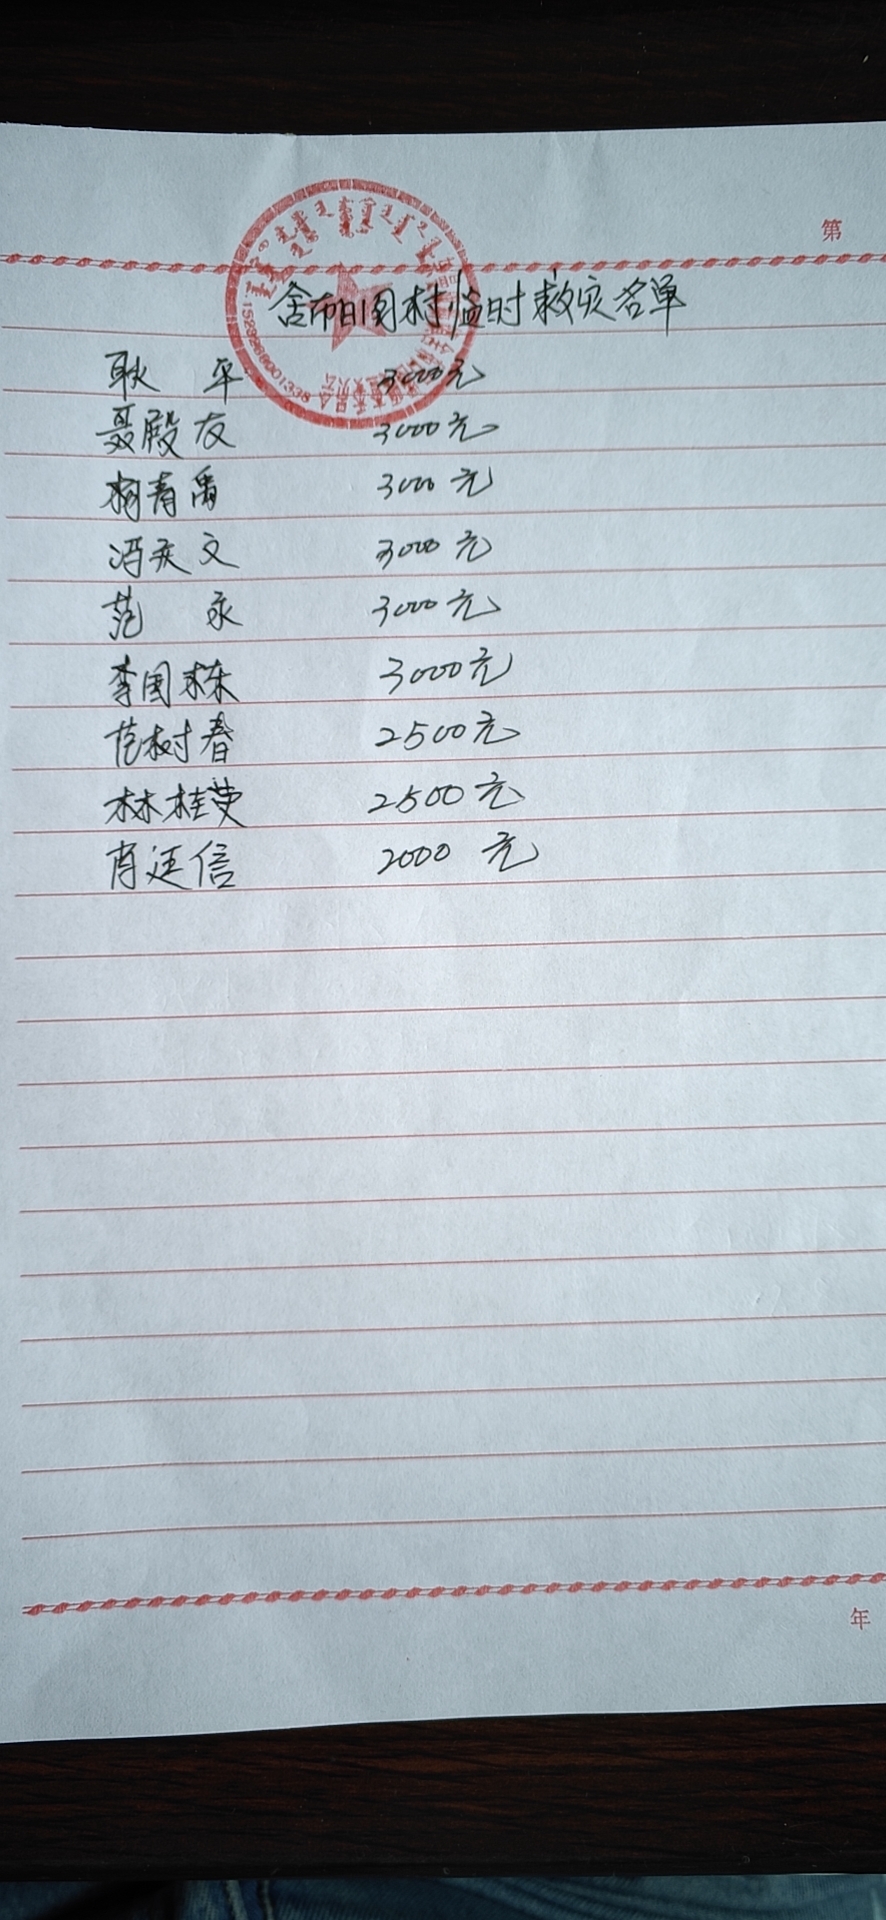 第
舍布日图村临时救灾名单
耿 平 3000元
聂殿友 3000元
杨青禹 3000元
冯庆文 3000元
范 永 3000元
李国栋 3000元
范树春 2500元
林桂荣 2500元
肖廷信 2000元
年